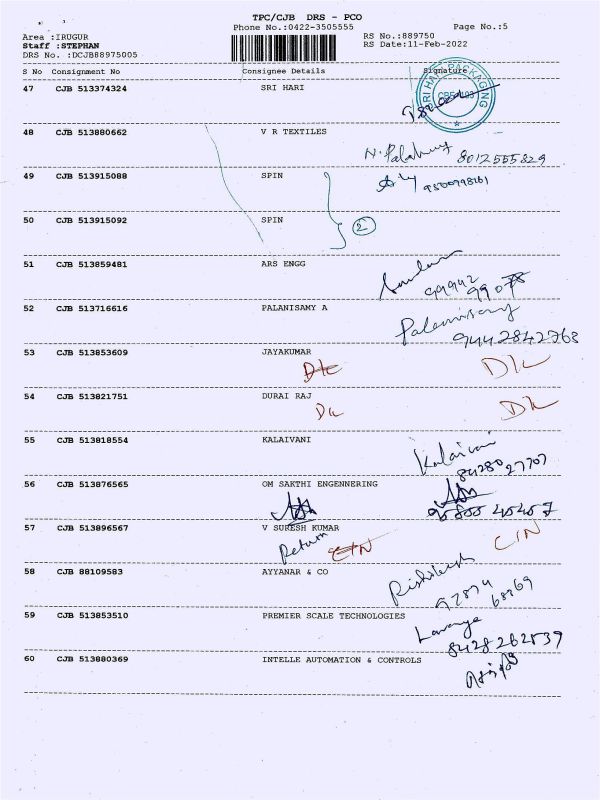 TPC/CJB DRS - PCO
Phone No.:0422-3505555 Page No.:5
Area :IRUGUR RS No.:889750
Staff :STEPHAN RS Date:11-Feb-2022
DRS No. :DCJB88975005
S No Consignment No Consignee Details Signature
47 CJB 513374324 SRI HARI
SRI HARI PACKAGING
48 CJB 513880662 V R TEXTILES
8012555829
49 CJB 513915088 SPIN
9500998161
50 CJB 513915092 SPIN
2
51 CJB 513859481 ARS ENGG
99942
52 CJB 513716616 PALANISAMY A
Palanisamy
9442842768
53 CJB 513853609 JAYAKUMAR
D/c D/c
54 CJB 513821751 DURAI RAJ
D/c D/c
55 CJB 513818554 KALAIVANI
Kalaivani
8428027707
56 CJB 513876565 OM SAKTHI ENGENNERING
57 CJB 513896567 V SURESH KUMAR
Return C/N C/N
58 CJB 88109583 AYYANAR & CO
59 CJB 513853510 PREMIER SCALE TECHNOLOGIES
Lavanya
8428262839
60 CJB 513880369 INTELLE AUTOMATION & CONTROLS